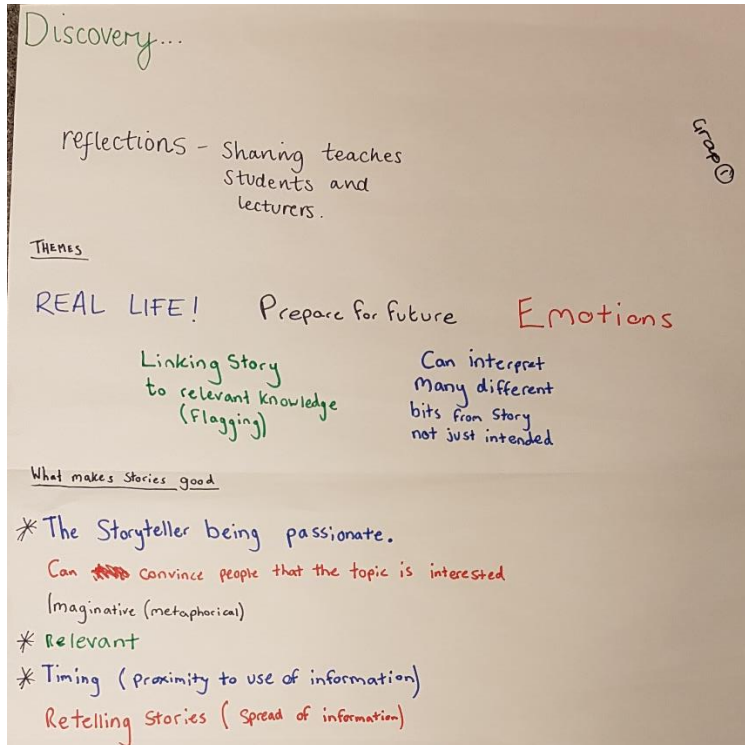 Discovery...
Group ①
reflections - Sharing teaches
Students and
lecturers.
THEMES
REAL LIFE! Prepare for future Emotions
Linking Story
to relevant knowledge
(Flagging)
Can interpret
many different
bits from Story
not just intended
What makes stories good
* The Storyteller being passionate.
Can convince people that the topic is interested
Imaginative (metaphorical)
* Relevant
* Timing (proximity to use of information)
Retelling Stories (spread of information)